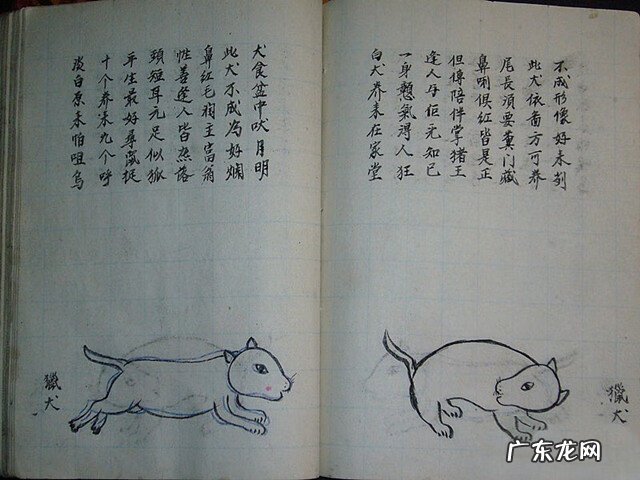 淡白原来怕咀乌
十个养来九个呼
平生最好尋鼠捉
頭短耳元足似狐
性善逢人皆焦落
鼻红毛润主富翁
此犬不成為好嫻
犬食盆中吠月明
獵犬
白犬养来在家堂
一身戇氣得人狂
逢人母钜元知已
但得陪伴掌猪王
鼻唎俱红皆是正
尾長須要糞门藏
此犬依番方可养
不成形像好未刻
獵犬
广东龙网